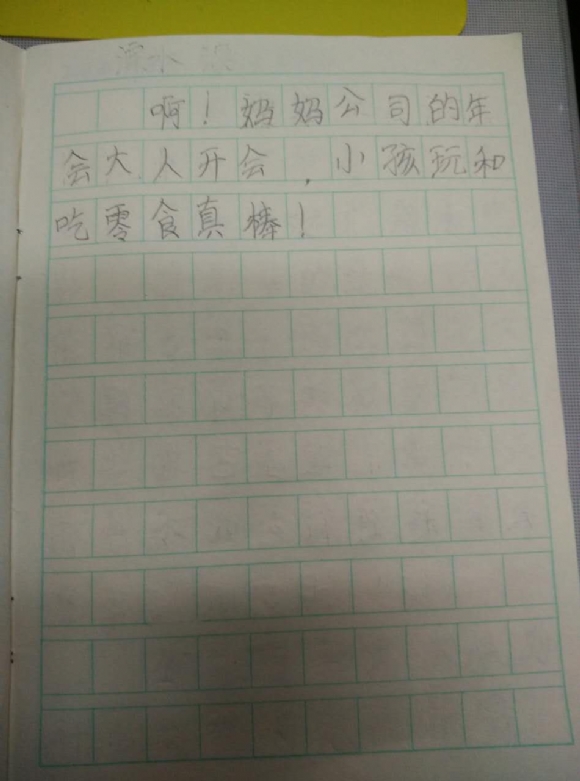 啊！妈妈公司的年
会大人开会，小孩玩和
吃零食真棒！